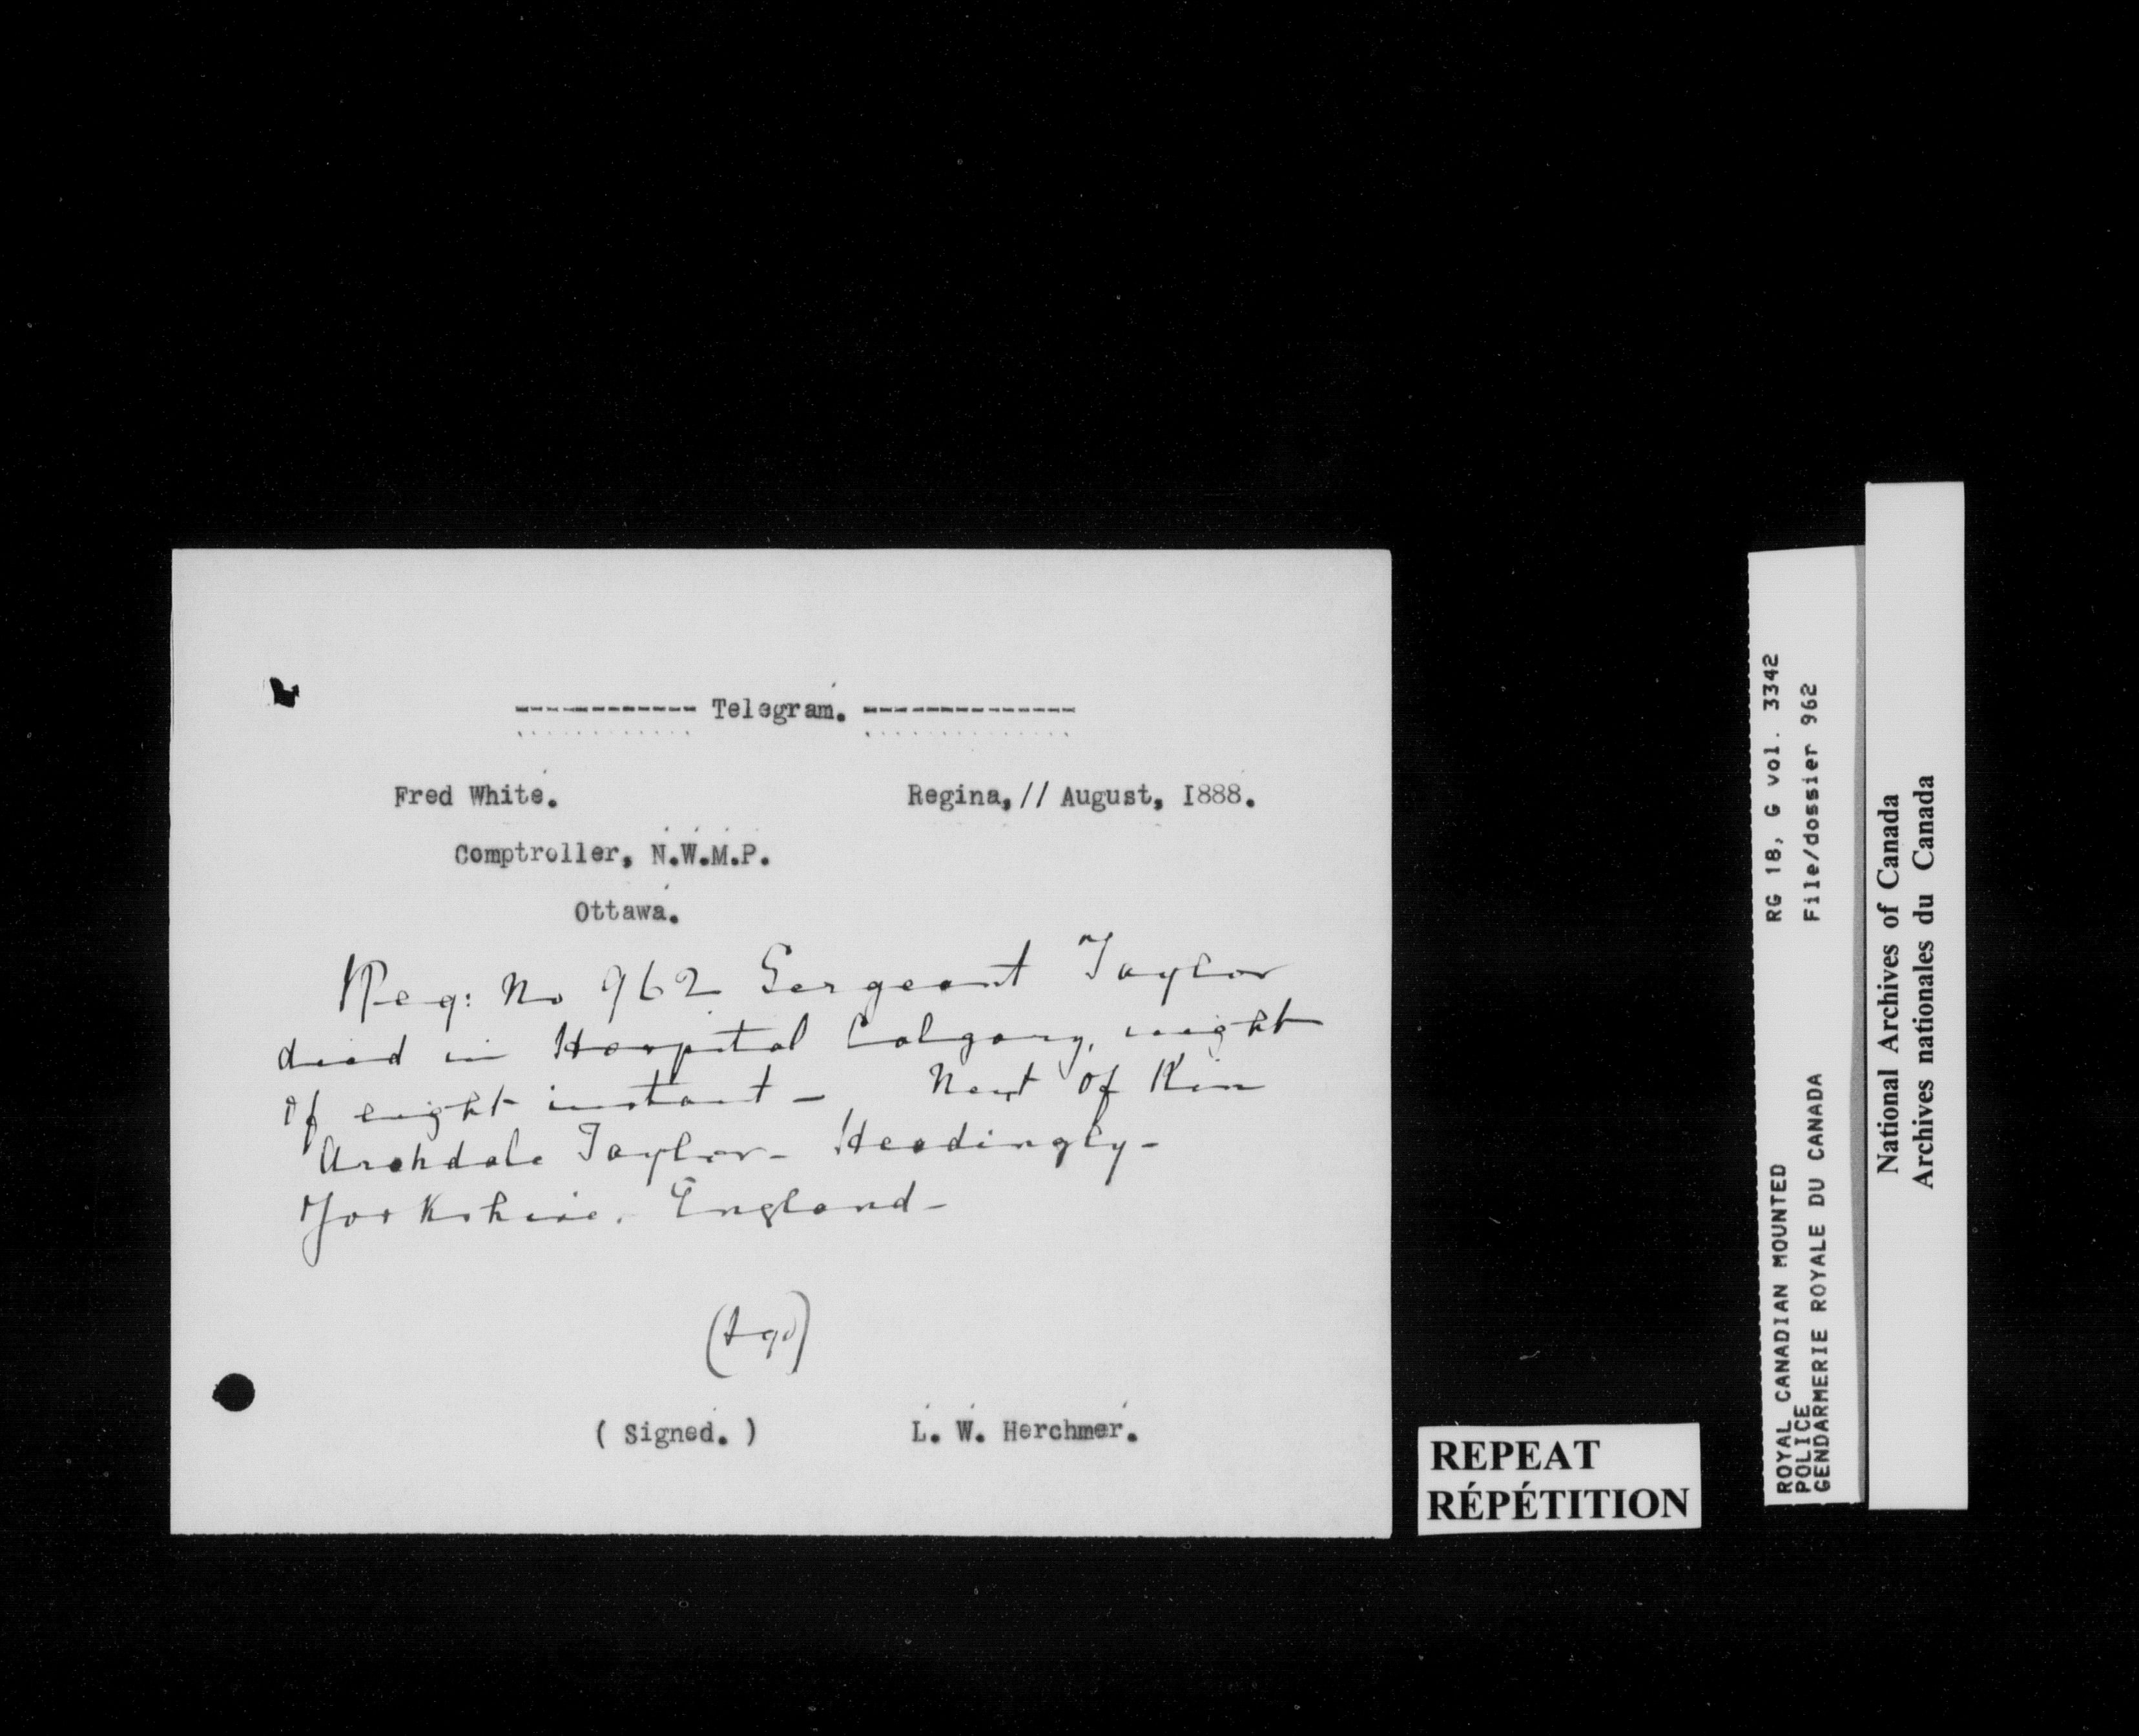 ----------- Telegram. -------------
Fred White.
Regina, 11 August, I888.
Comptroller, N.W.M.P.
Ottawa.
Reg: No 962 Sergeant Taylor
died in Hospital Calgary, night
of eight instant - Next of Kin
Archdale Taylor - Headingly -
Yorkshire, England -
(sgd)
( Signed. ) L. W. Herchmer.
REPEAT
RÉPÉTITION
RG 18, G vol. 3342
File/dossier 962
ROYAL CANADIAN MOUNTED
POLICE
GENDARMERIE ROYALE DU CANADA
National Archives of Canada
Archives nationales du Canada